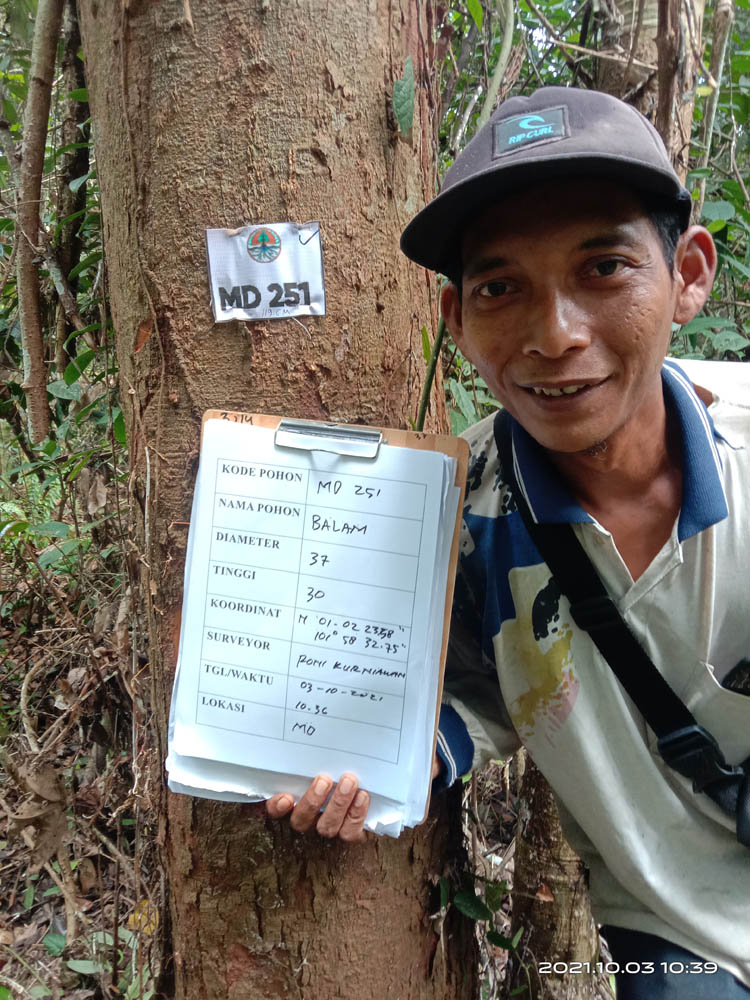 RIP CURL
MD 251
119 CM
KODE POHON MD 251
NAMA POHON BALAM
DIAMETER 37
TINGGI 30
KOORDINAT N 01-02 23.58"
101° 58 32.75"
SURVEYOR ROMI KURNIAWAN
TGL/WAKTU 03-10-2021
10.36
LOKASI MD
2021.10.03 10:39